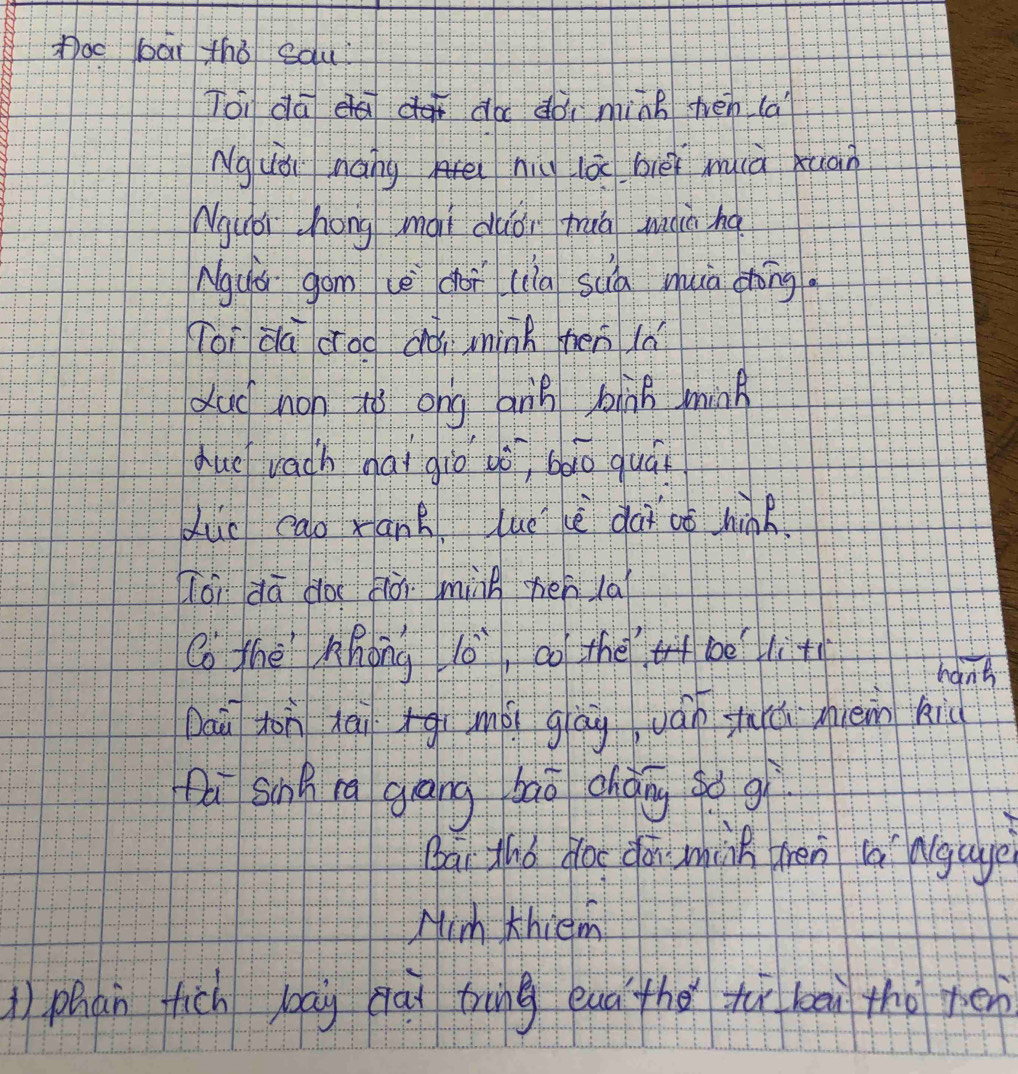 Đọc bài thơ sau:
Tôi đã đọc đời mình trên lá
Người nâng niu lộc biếc mùa xuân
Người hong mát dưới trưa mùa hạ
Người gom về đốt lửa sưa mùa đông.
Tôi đã đọc đời mình trên lá
Lúc non tơ óng ánh bình minh
Lúc rách nát gió vò, bão quật
Lúc cao xanh, lúc về đất vô hình.
Tôi đã đọc đời mình trên lá
Có thể khổng lồ, có thể bé li ti
Dẫu tồn tại một giây, vẫn tươi niềm kiêu hãnh
Đã sinh ra giông bão chẳng sợ gì.
Bài thơ đọc đời mình trên lá Nguyễn
Minh Khiêm
1) phân tích bảy đặt trưng của thơ từ bài thơ trên